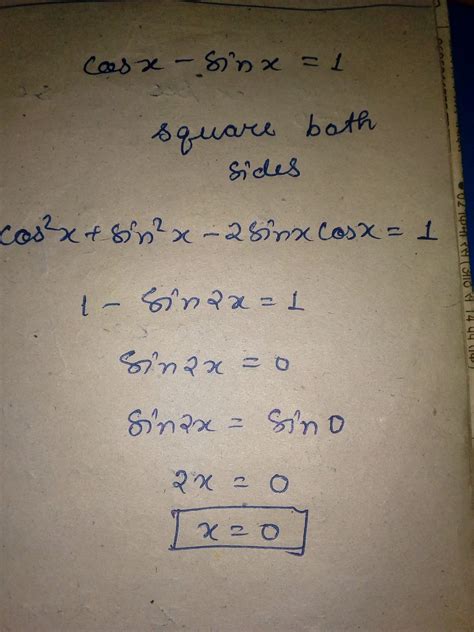 cosx - sinx = 1
square both
sides
cos²x + sin²x - 2sinxcosx = 1
1 - sin2x = 1
sin2x = 0
sin2x = sin0
2x = 0
x = 0